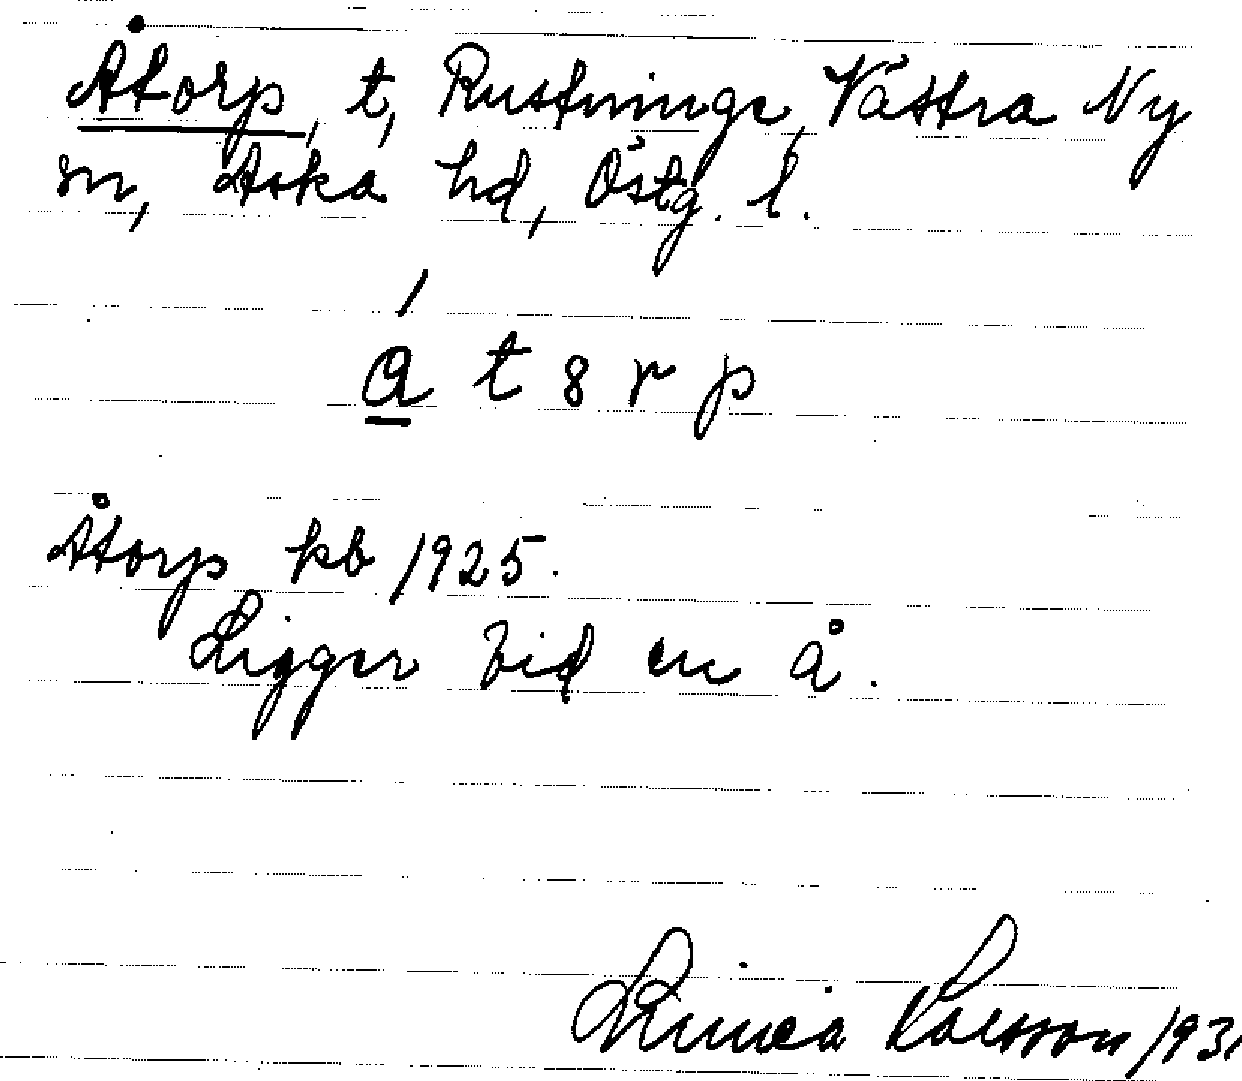 Åtorp, t, Rustninge, Västra Ny
sn, Aska hd, Östg. l.
á t 8 r p
Åtorp kb 1925.
Ligger vid en å.
Linnea Larsson 1931